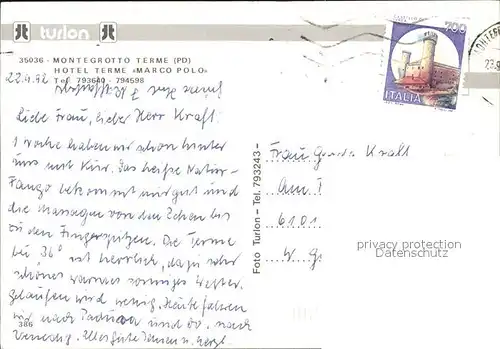 turlon
35036 - MONTEGROTTO TERME (PD)
HOTEL TERME «MARCO POLO»
Tel. 793640 - 794598
700
ITALIA
22.9.92
Liebe Frau, lieber Herr Kraft!
1 Woche haben wir schon hinter
uns mit Kur. Das heiße Natur-
Fango bekommt mir gut und
die Massagen von den Zehen bis
zu den Fingerspitzen. Die Terme
bei 36° ist herrlich, dazu sehr
schönes warmes sonniges Wetter.
Gelaufen wird wenig. Heute fahren
wir nach Padua und Do. nach
Venedig. Alles Gute Ihnen u. herzl.
386
Foto Turlon - Tel. 793243 -
Frau Kraft
Am
6101
W. G
privacy protection
Datenschutz